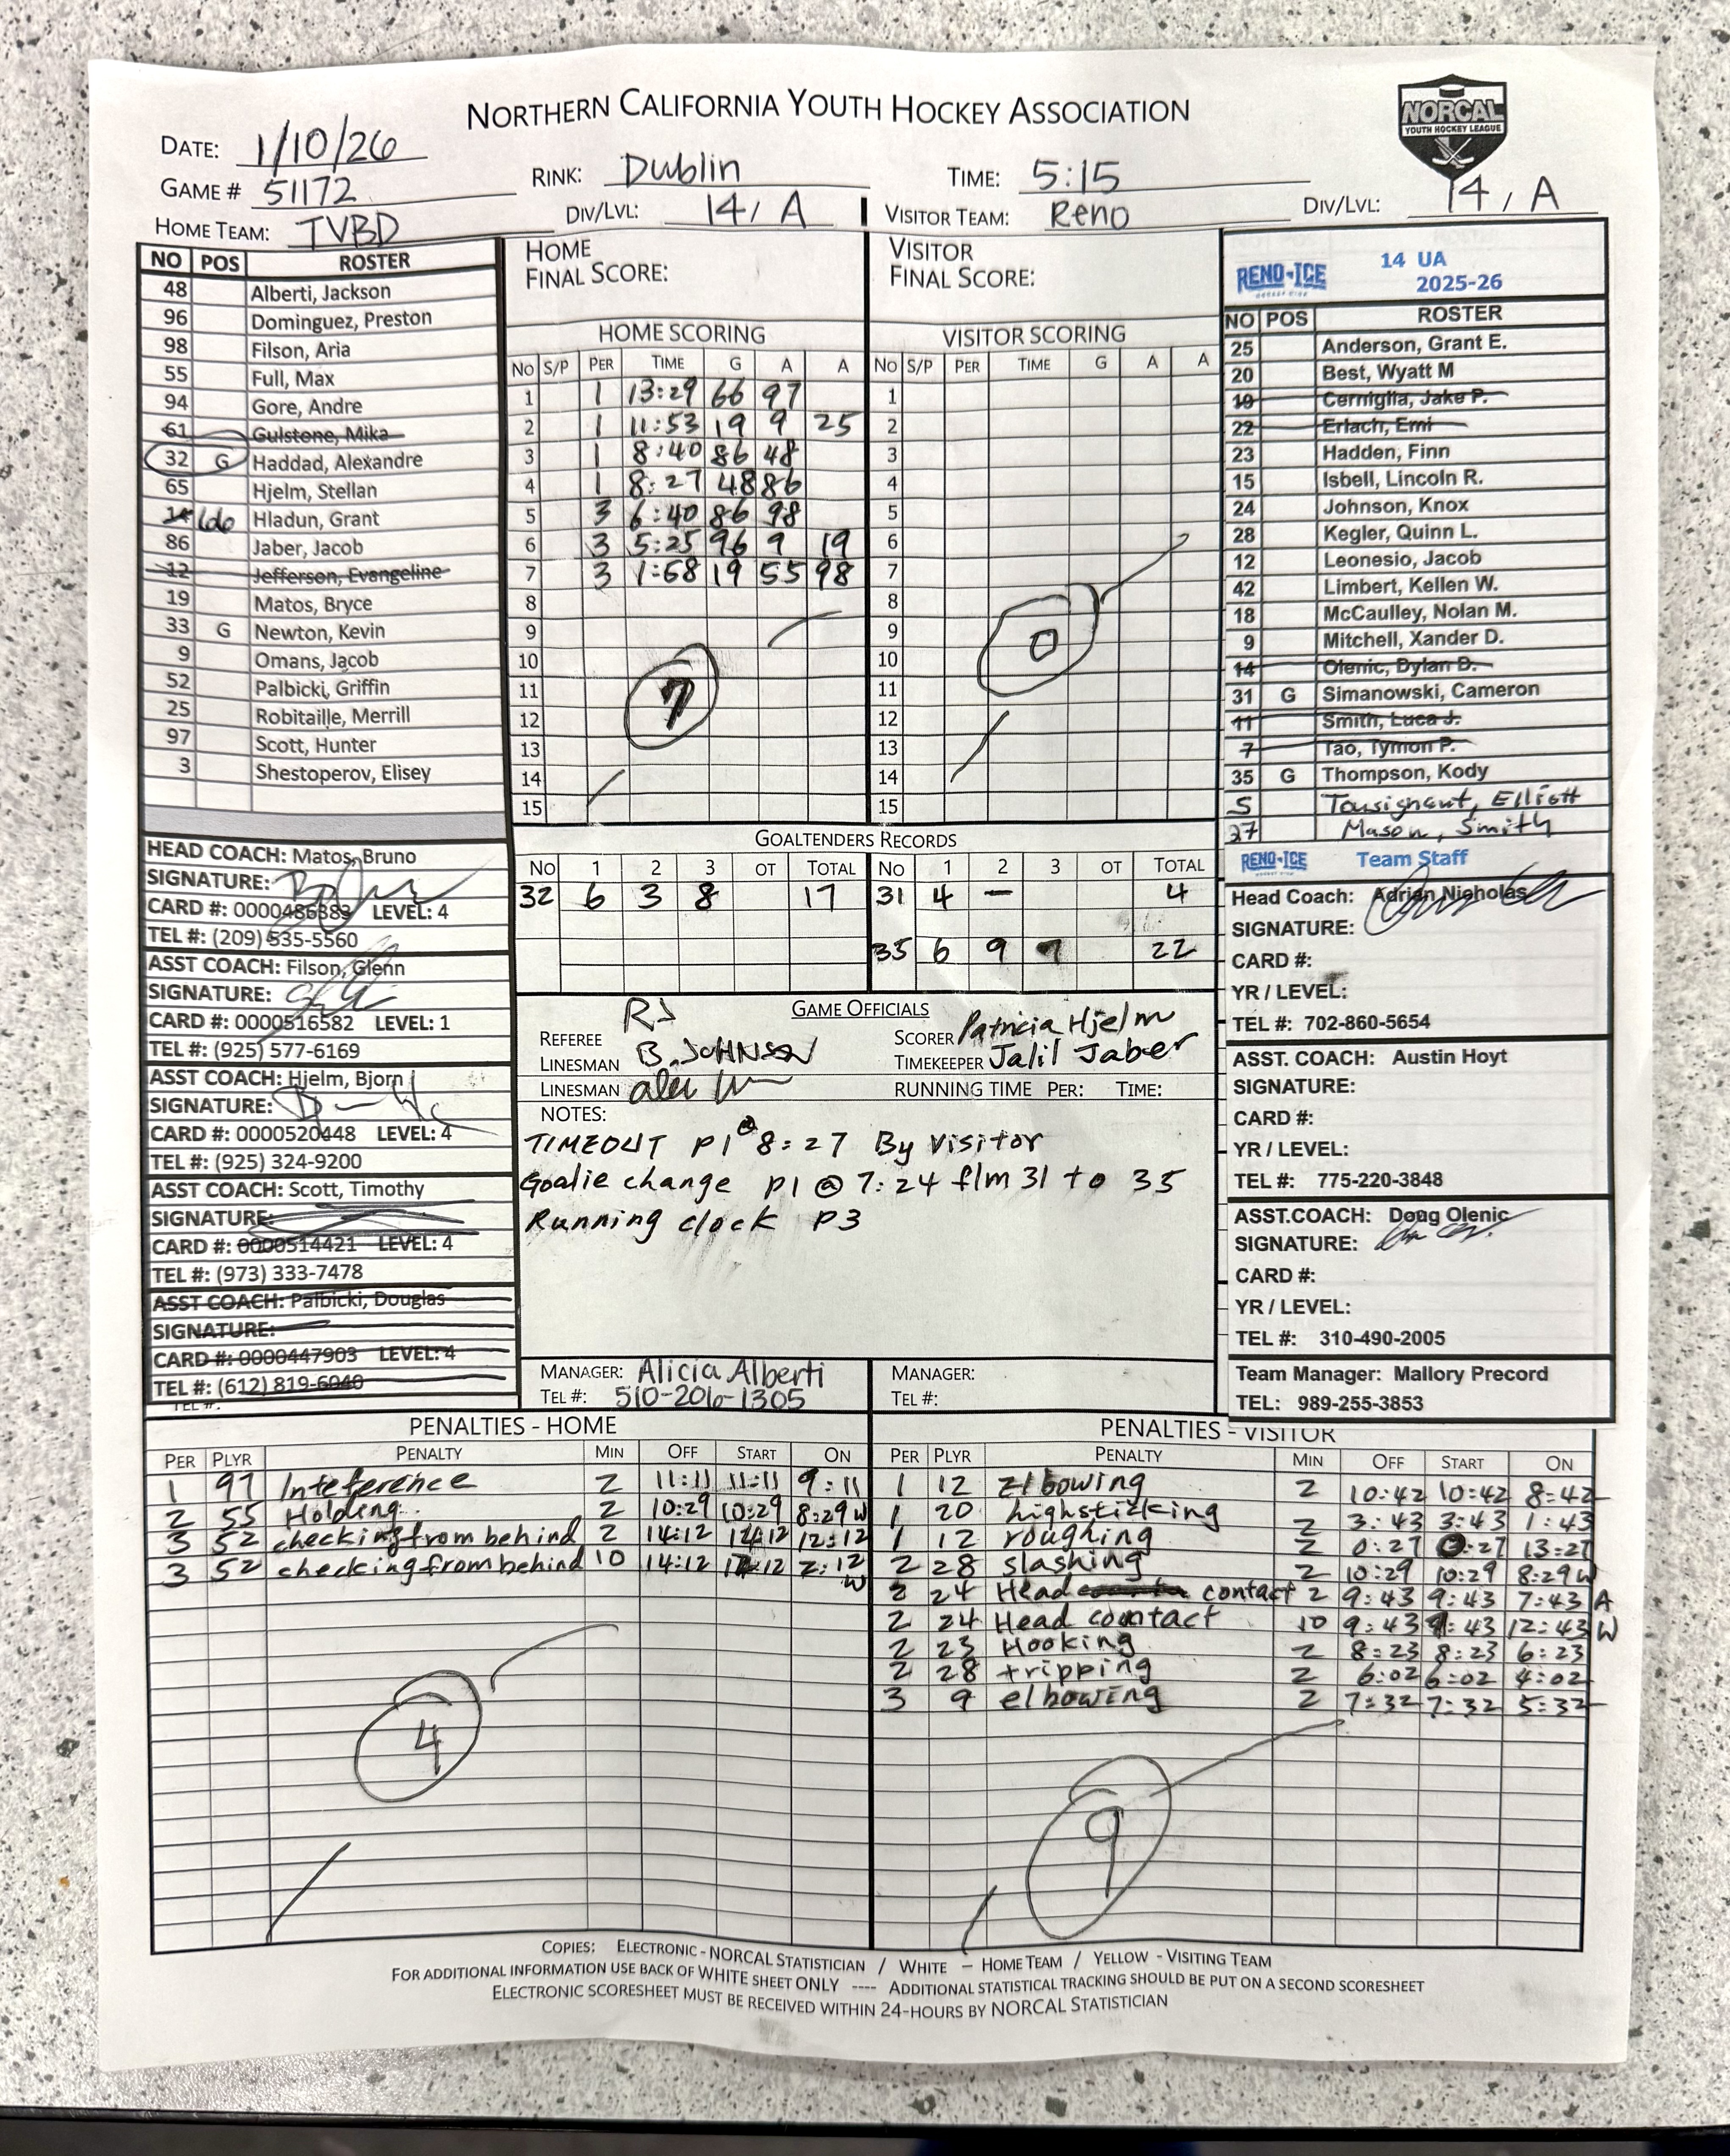 NORTHERN CALIFORNIA YOUTH HOCKEY ASSOCIATION
NORCAL
YOUTH HOCKEY LEAGUE
DATE: 1/10/26
GAME # 51172
RINK: Dublin
TIME: 5:15
HOME TEAM: TVBD
DIV/LVL: 14 / A
VISITOR TEAM: Reno
DIV/LVL: 14 / A
NO POS ROSTER
48 Alberti, Jackson
96 Dominguez, Preston
98 Filson, Aria
55 Full, Max
94 Gore, Andre
61 Gulstone, Mika
32 G Haddad, Alexandre
65 Hjelm, Stellan
66 Hladun, Grant
86 Jaber, Jacob
12 Jefferson, Evangeline
19 Matos, Bryce
33 G Newton, Kevin
9 Omans, Jacob
52 Palbicki, Griffin
25 Robitaille, Merrill
97 Scott, Hunter
3 Shestoperov, Elisey
HEAD COACH: Matos, Bruno
SIGNATURE:
CARD #: 0000486383 LEVEL: 4
TEL #: (209) 535-5560
ASST COACH: Filson, Glenn
SIGNATURE:
CARD #: 0000516582 LEVEL: 1
TEL #: (925) 577-6169
ASST COACH: Hjelm, Bjorn
SIGNATURE:
CARD #: 0000520448 LEVEL: 4
TEL #: (925) 324-9200
ASST COACH: Scott, Timothy
SIGNATURE:
CARD #: 0000514421 LEVEL: 4
TEL #: (973) 333-7478
ASST COACH: Palbicki, Douglas
SIGNATURE:
CARD #: 0000447903 LEVEL: 4
TEL #: (612) 819-6040
TEL #:
HOME
FINAL SCORE:
HOME SCORING
NO S/P PER TIME G A A
1 1 13:29 66 97
2 1 11:53 19 9 25
3 1 8:40 86 48
4 1 8:27 48 86
5 3 6:40 86 98
6 3 5:25 96 9 19
7 3 1:58 19 55 98
8
9
10
11
12
13
14
15
7
VISITOR
FINAL SCORE:
VISITOR SCORING
NO S/P PER TIME G A A
1
2
3
4
5
6
7
8
9
10
11
12
13
14
15
0
GOALTENDERS RECORDS
NO 1 2 3 OT TOTAL NO 1 2 3 OT TOTAL
32 6 3 8 17 31 4 — 4
35 6 9 7 22
GAME OFFICIALS
REFEREE RJ
LINESMAN B. JOHNSON
LINESMAN alex
SCORER Patricia Hjelm
TIMEKEEPER Jalil Jaber
RUNNING TIME PER: TIME:
NOTES:
TIMEOUT P1 @ 8:27 By Visitor
Goalie change P1 @ 7:24 f/m 31 to 35
Running clock P3
MANAGER: Alicia Alberti
TEL #: 510-206-1305
MANAGER:
TEL #:
RENO ICE
14 UA
2025-26
NO POS ROSTER
25 Anderson, Grant E.
20 Best, Wyatt M
19 Cerniglia, Jake P.
22 Erlach, Emi
23 Hadden, Finn
15 Isbell, Lincoln R.
24 Johnson, Knox
28 Kegler, Quinn L.
12 Leonesio, Jacob
42 Limbert, Kellen W.
18 McCaulley, Nolan M.
9 Mitchell, Xander D.
14 Olenic, Dylan D.
31 G Simanowski, Cameron
11 Smith, Luca J.
7 Tao, Tymon P.
35 G Thompson, Kody
5 Tousignant, Elliott
27 Mason, Smith
RENO ICE Team Staff
Head Coach: Adrian Nicholas
SIGNATURE:
CARD #:
YR / LEVEL:
TEL #: 702-860-5654
ASST. COACH: Austin Hoyt
SIGNATURE:
CARD #:
YR / LEVEL:
TEL #: 775-220-3848
ASST.COACH: Doug Olenic
SIGNATURE:
CARD #:
YR / LEVEL:
TEL #: 310-490-2005
Team Manager: Mallory Precord
TEL: 989-255-3853
PENALTIES - HOME
PER PLYR PENALTY MIN OFF START ON
1 97 Inteference 2 11:11 11:11 9:11
2 55 Holding 2 10:29 10:29 8:29 W
3 52 checking from behind 2 14:12 14:12 12:12
3 52 checking from behind 10 14:12 12:12 2:12 W
4
PENALTIES - VISITOR
PER PLYR PENALTY MIN OFF START ON
1 12 Elbowing 2 10:42 10:42 8:42
1 20 highsticking 2 3:43 3:43 1:43
1 12 roughing 2 0:27 0:27 13:27
2 28 slashing 2 10:29 10:29 8:29 W
2 24 Head contact 2 9:43 9:43 7:43 A
2 24 Head contact 10 9:43 9:43 12:43 W
2 23 Hooking 2 8:23 8:23 6:23
2 28 tripping 2 6:02 6:02 4:02
3 9 elbowing 2 7:32 7:32 5:32
9
COPIES: ELECTRONIC - NORCAL STATISTICIAN / WHITE – HOME TEAM / YELLOW - VISITING TEAM
FOR ADDITIONAL INFORMATION USE BACK OF WHITE SHEET ONLY ---- ADDITIONAL STATISTICAL TRACKING SHOULD BE PUT ON A SECOND SCORESHEET
ELECTRONIC SCORESHEET MUST BE RECEIVED WITHIN 24-HOURS BY NORCAL STATISTICIAN